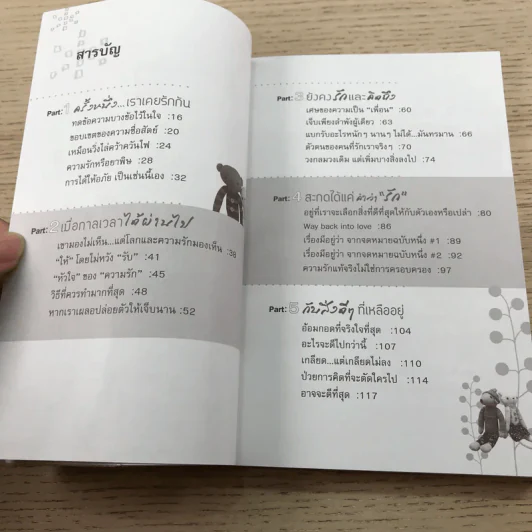 สารบัญ
Part:1 ครั้งหนึ่ง...เราเคยรักกัน
ทดข้อความบางข้อไว้ในใจ :16
ขอบเขตของความซื่อสัตย์ :20
เหมือนวิ่งไล่คว้าควันไฟ :24
ความรักหรือยาพิษ :28
การได้ให้อภัย เป็นเช่นนี้เอง :32
Part:2 เมื่อกาลเวลาได้ผ่านไป
เขามองไม่เห็น...แต่โลกและความรักมองเห็น :38
"ให้" โดยไม่หวัง "รับ" :41
"หัวใจ" ของ "ความรัก" :45
วิธีที่ควรทำมากที่สุด :48
หากเราเผลอปล่อยตัวให้เจ็บนาน :52
Part:3 ยังคงรักและคิดถึง
เศษของความเป็น "เพื่อน" :60
เจ็บเพียงลำพังผู้เดียว :63
แบกรับอะไรหนักๆ นานๆ ไม่ได้...มันทรมาน :66
ตัวตนของคนที่รักเราจริงๆ :70
วงกลมวงเดิม แต่เพิ่มบางสิ่งลงไป :74
Part:4 สะกดได้แค่ คำว่า "รัก"
อยู่ที่เราจะเลือกสิ่งที่ดีที่สุดให้กับตัวเองหรือเปล่า :80
Way back into love :86
เรื่องมีอยู่ว่า จากจดหมายฉบับหนึ่ง #1 :89
เรื่องมีอยู่ว่า จากจดหมายฉบับหนึ่ง #2 :92
ความรักแท้จริงไม่ใช่การครอบครอง :97
Part:5 กับสิ่งดีๆ ที่เหลืออยู่
อ้อมกอดที่จริงใจที่สุด :104
อะไรจะดีไปกว่านี้ :107
เกลียด...แต่เกลียดไม่ลง :110
ป่วยการคิดที่จะตัดใครไป :114
อาจจะดีที่สุด :117